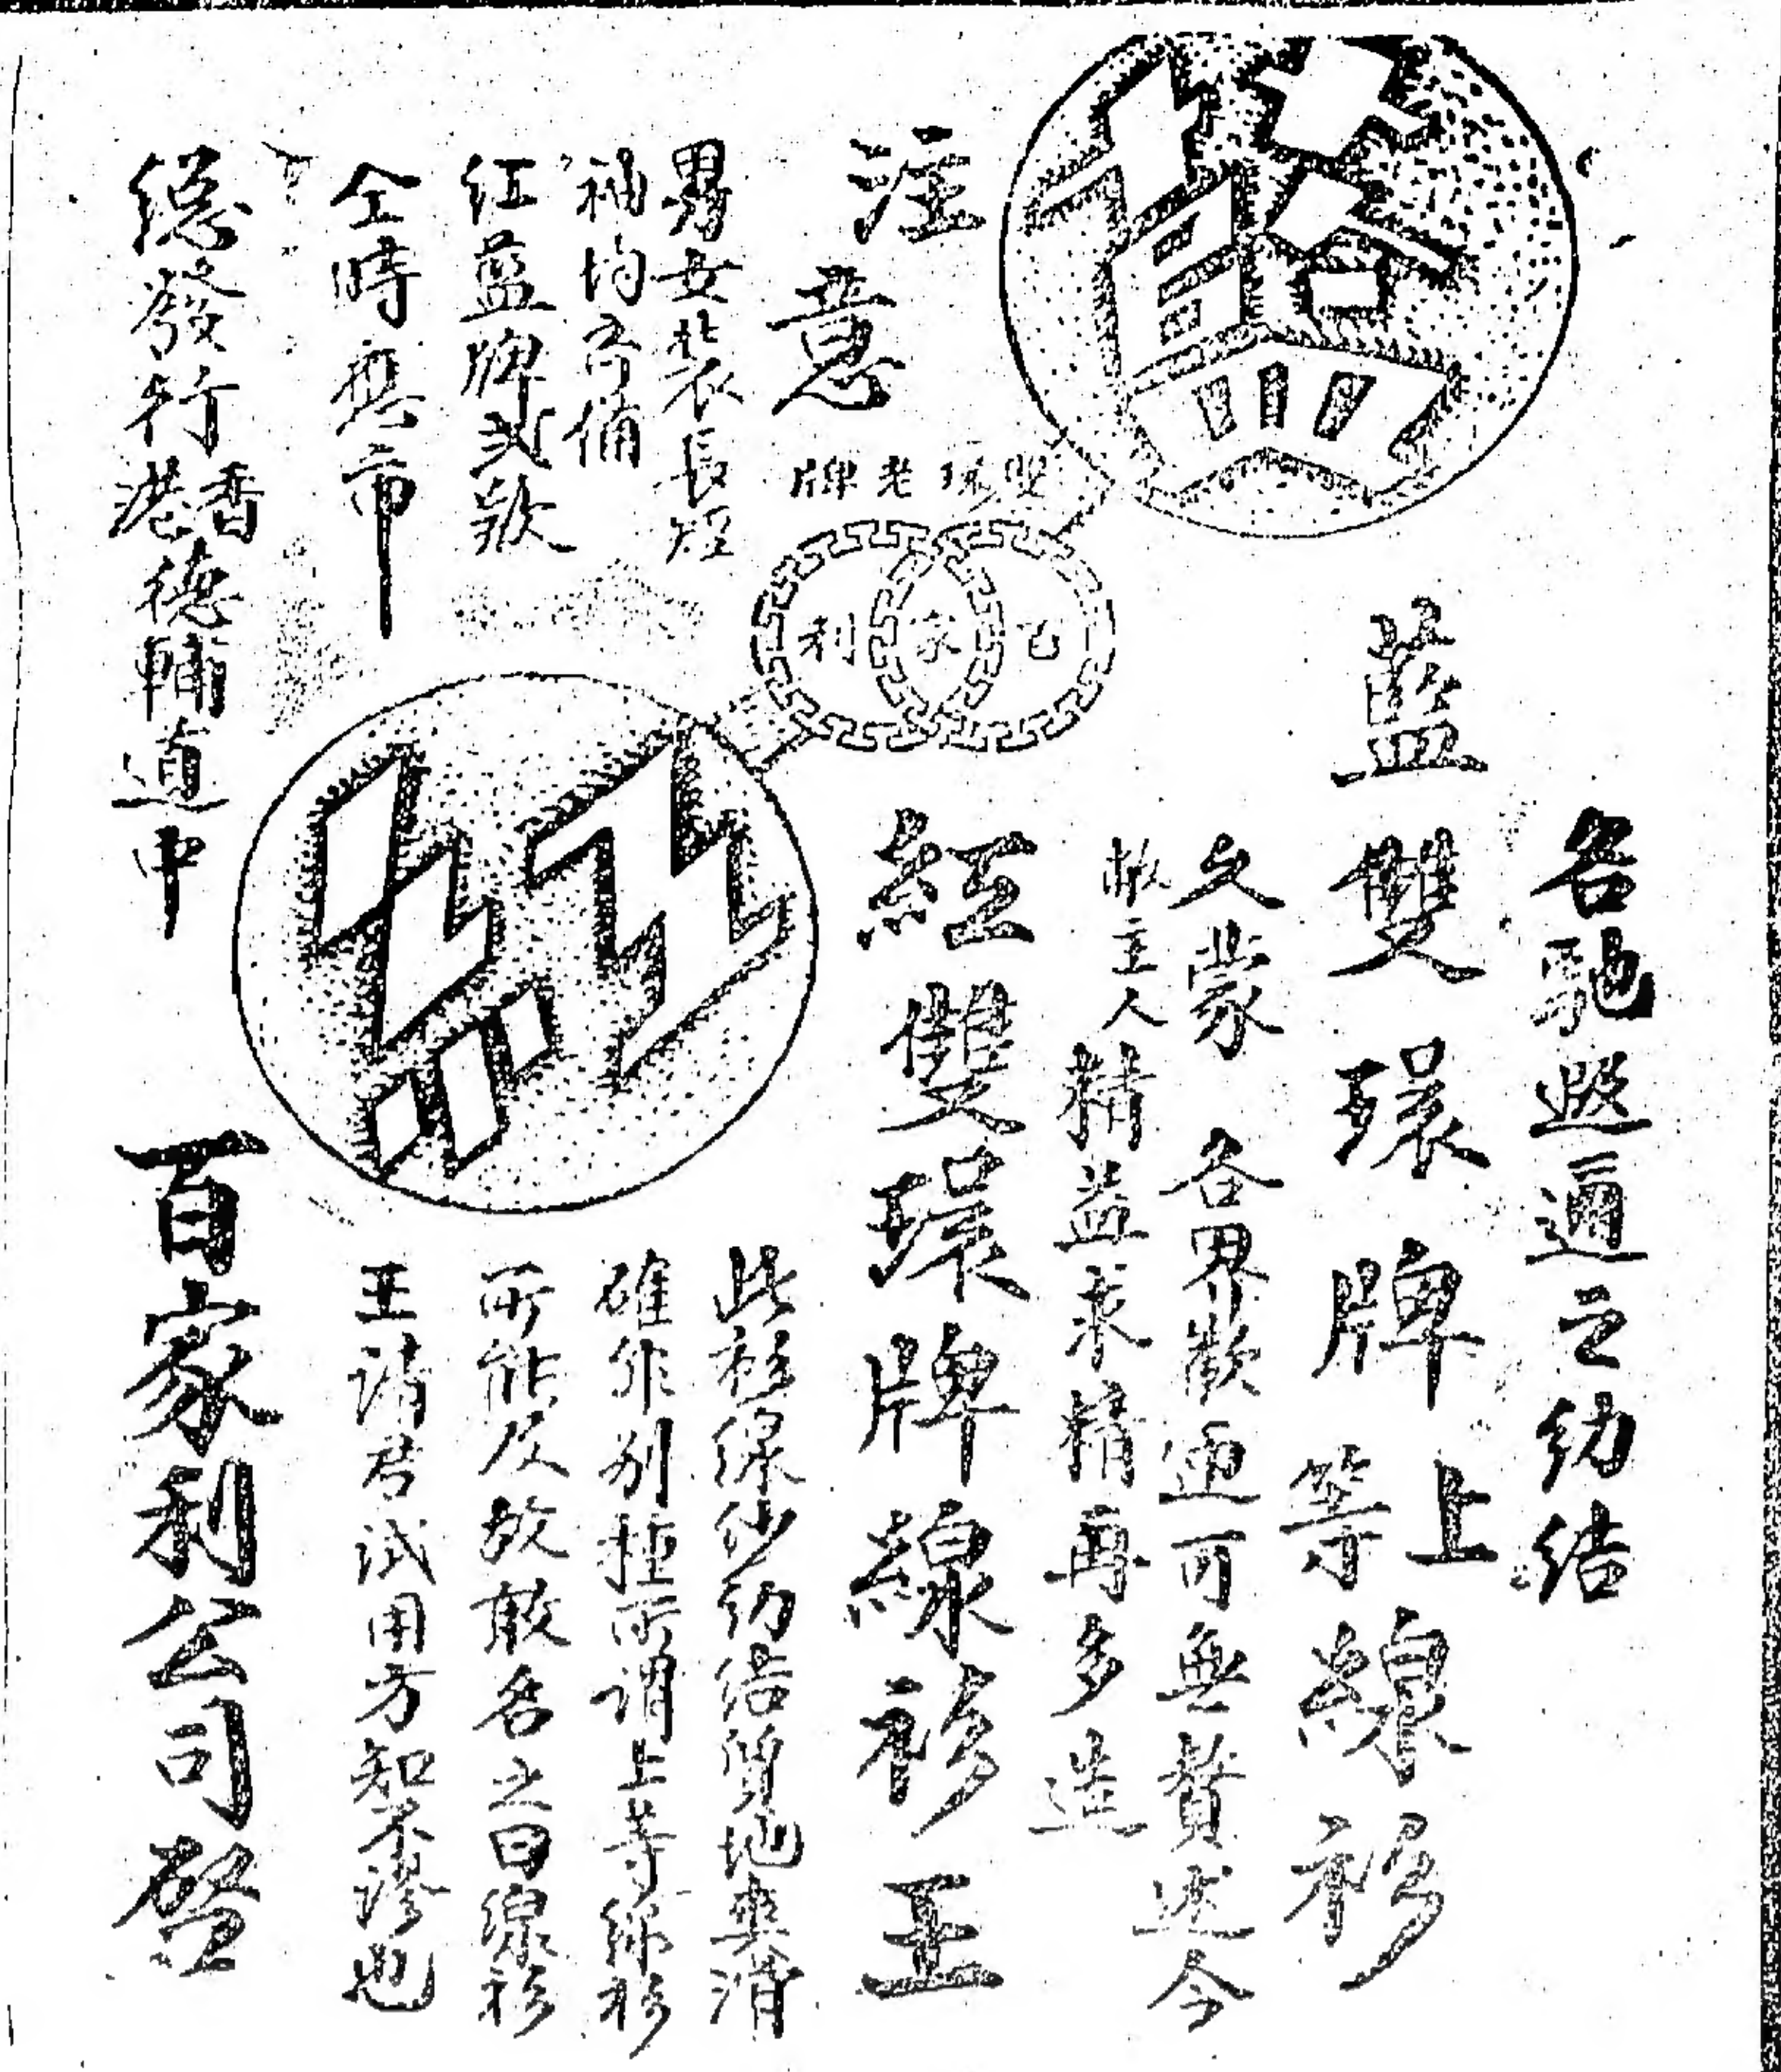 名馳遐邇之幼結
藍雙環牌上等線衫
久蒙 各界歡迎可無贅述今
敝主人精益求精再多造
紅雙環牌線衫王
此衫線紗幼結質地爽滑
確非別種所謂上等線衫
所能及故敢名之曰線衫
王請君試用方知不謬也
藍
雙環老牌
百家利
紅
注意
男女裝長短
袖均齊備
紅藍牌弍欵
仝時應市
總發行香港德輔道中
百家利公司啓